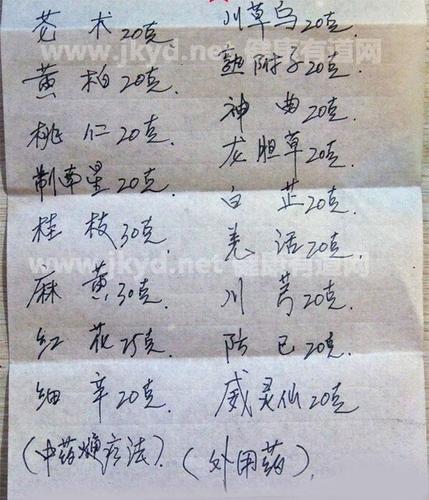 苍术20克 川草乌20克.
www.jkyd.net 健康有道网
黄柏20克. 熟附子20克.
桃仁20克. 神曲20克.
制南星20克. 龙胆草20克.
桂枝30克. 白芷20克.
羌活20克.
www.jkyd.net 健康有道网
麻黄30克. 川芎20克.
红花25克. 防己20克.
细辛20克. 威灵仙20克
(中药熏疗法). (外用药).
www.jkyd.net 健康有道网